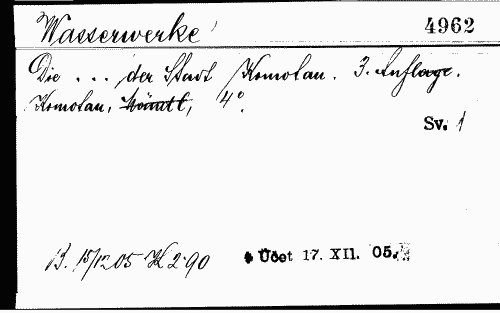 Wasserwerke 4962
Die ... der Stadt Komotau. 3. Auflage.
Komotau, 4°.
Sv. 1
B. 15/12 05 K 2·90
Účet 17. XII. 05.